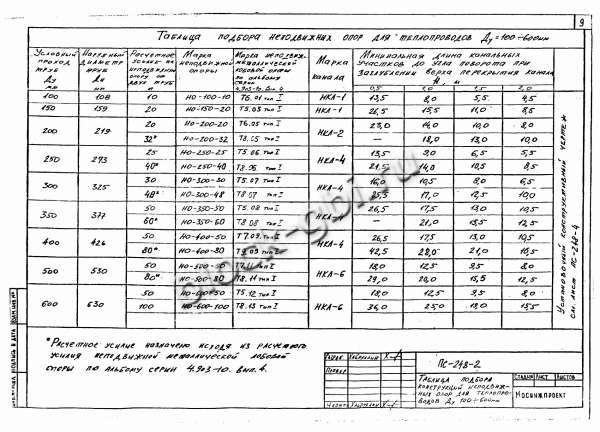 9
Таблица подбора неподвижных опор для теплопроводов Ду=100÷600мм
Условный проход труб Ду мм
Наружный диаметр труб Дн мм
Расчетное усилие на неподвижную опору от двух труб т
Марка неподвижной опоры
Марка неподвиж. металлической лобовой опоры по альбому серии 4.903-10. Вып. 4
Марка канала
Минимальная длина канальных участков до угла поворота при заглублении верха перекрытия канала Н, м
0,5 1,0 1,5 2,0
100 108 10 НО-100-10 Т6.01 тип I НКЛ-1 13,5 8,0 5,5 4,5
150 159 20 НО-150-20 Т5.03 тип I НКЛ-1 26,5 15,5 11,0 8,5
200 219 20 НО-200-20 Т6.05 тип I НКЛ-2 23,0 14,0 10,0 8,0
32* НО-200-32 Т8.05 тип I — 18,0 13,0 10,0
250 273 25 НО-250-25 Т5.06 тип I НКЛ-4 13,5 9,0 6,5 5,5
40* НО-250-40 Т8.06 тип I 21,5 14,0 10,5 8,5
300 325 30 НО-300-30 Т5.07 тип I НКЛ-4 16,0 10,5 8,0 6,5
48* НО-300-48 Т8.07 тип I 25,5 17,0 12,5 10,0
350 377 50 НО-350-50 Т5.08 тип I 26,5 17,5 13,0 10,5
60* НО-350-60 Т8.08 тип I — 21,0 15,5 12,5
400 426 50 НО-400-50 Т7.09 тип I НКЛ-4 26,5 17,5 13,0 10,5
80* НО-400-80 Т9.09 тип I 42,5 28,0 21,0 16,5
500 530 50 НО-500-50 Т7.11 тип I НКЛ-6 18,0 12,5 9,5 8,0
80* НО-500-80 Т8.11 тип I 29,0 20,0 15,5 12,5
600 630 50 НО-600-50 Т5.12 тип I НКЛ-6 18,0 12,5 9,5 8,0
100 НО-600-100 Т8.13 тип I 36,0 25,0 19,0 15,5
Установочный конструктивный чертеж
см. лист ПС-248-4
*Расчетное усилие назначено исходя из расчетного
усилия неподвижной металлической лобовой
опоры по альбому серии 4.903-10. Вып. 4.
ПС-248-2
Таблица подбора
конструкций неподвиж-
ных опор для теплопро-
водов Ду 100÷600мм
Стадия Лист Листов
Мосинжпроект
stroy-gbi.ru